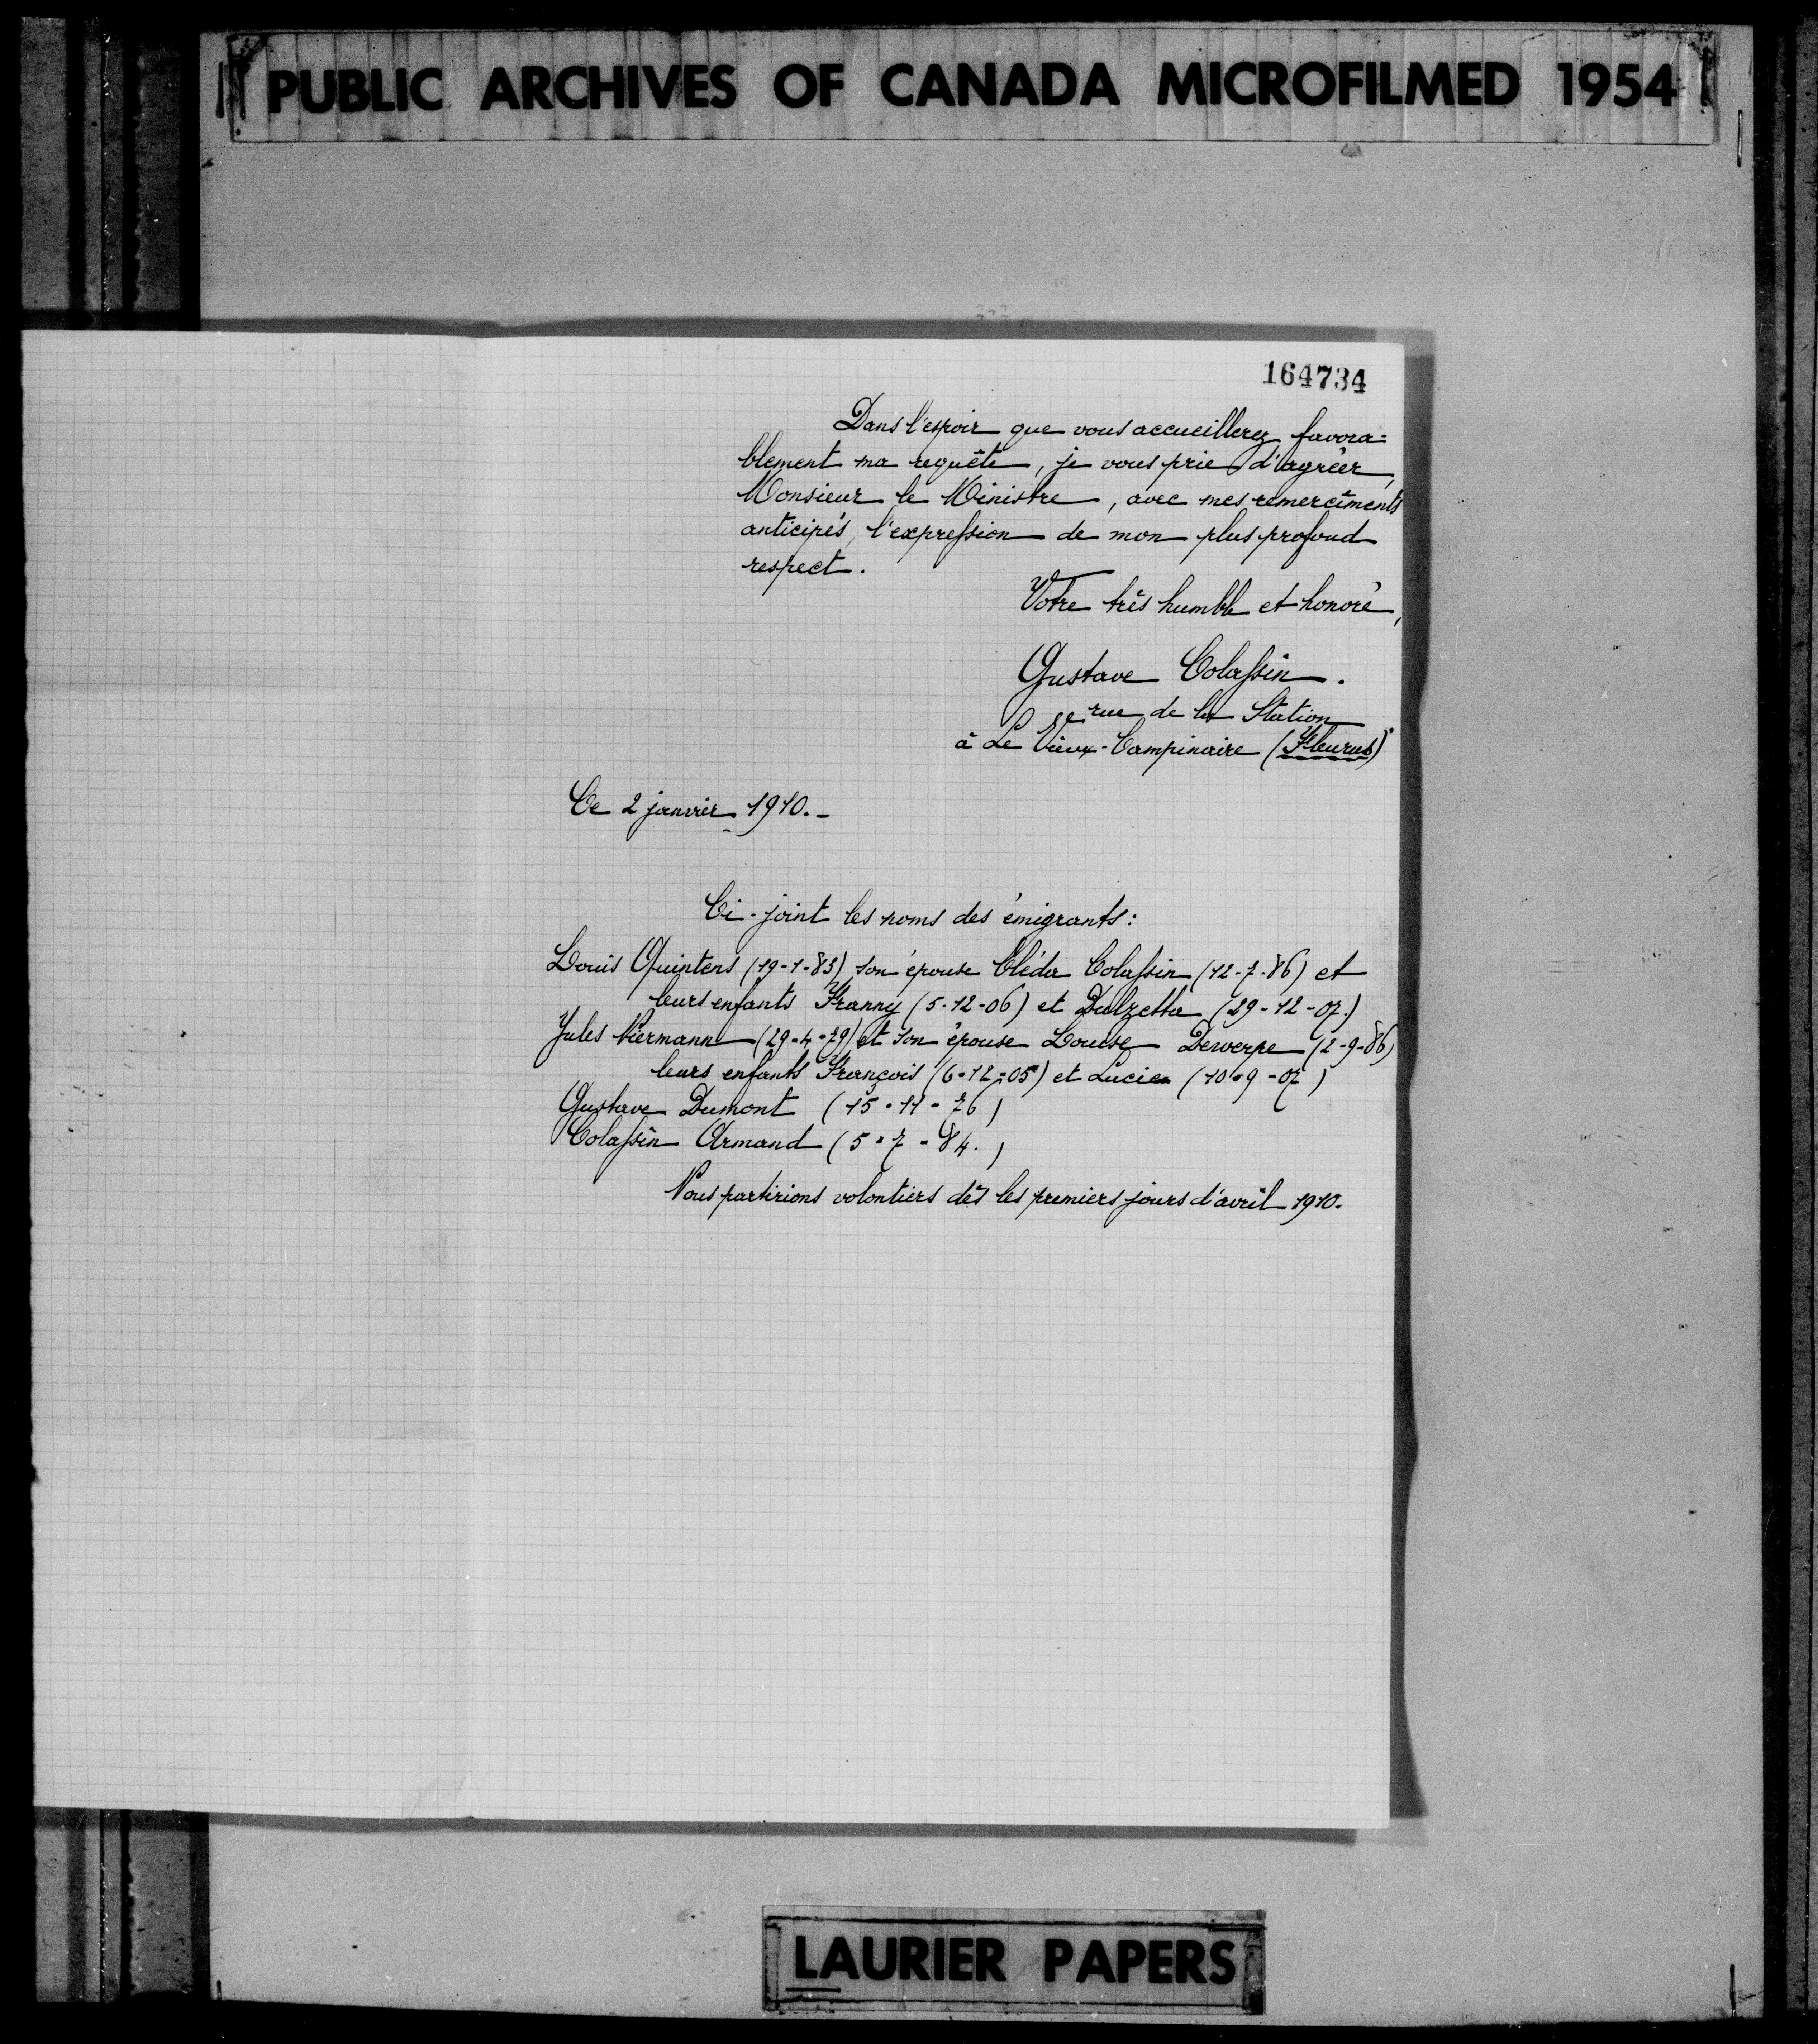 PUBLIC ARCHIVES OF CANADA MICROFILMED 1954
164734
Dans l'espoir que vous accueillerez favora=
blement ma requête, je vous prie d'agréer,
Monsieur le Ministre, avec mes remercîments
anticipés, l'expression de mon plus profond
respect.
Votre très humble et honoré,
Gustave Colassin.
rue de la Station
à Le Vieux-Campinaire (Fleurus)
Ce 2 janvier 1910.-
Ci-joint les noms des émigrants:
Louis Quintens (19-1-83) son épouse Cléda Colassin (12-7-86) et
leurs enfants Franny (5-12-06) et Dulzetta (29-12-07.)
Jules Niermann (29-4-79) et son épouse Louise Dewerpe (2-9-86)
leurs enfants François (6-12-05) et Lucien (10-9-07)
Gustave Dumont (15-11-76)
Colassin Armand (5-7-84.)
Nous partirions volontiers dès les premiers jours d'avril 1910.
LAURIER PAPERS